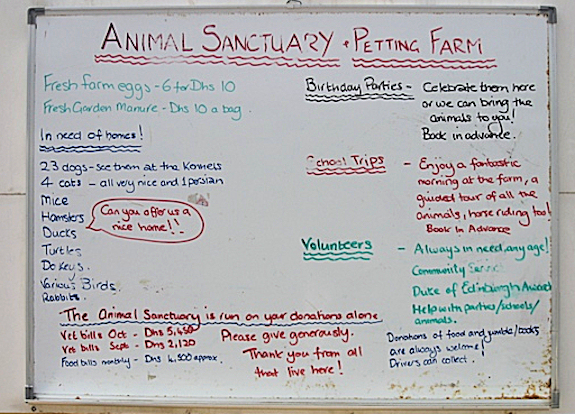 ANIMAL SANCTUARY + PETTING FARM
Fresh farm eggs - 6 for Dhs 10
Fresh Garden Manure - Dhs 10 a bag.
In need of homes!
23 dogs - see them at the Kennels
4 cats - all very nice and 1 persian
Mice
Hamsters
Ducks
Turtles
Donkeys.
Various Birds
Rabbits.
Can you offer us a
nice home!!
Birthday Parties - Celebrate them here
or we can bring the
animals to you!
Book in advance.
School Trips - Enjoy a fantastic
morning at the farm, a
guided tour of all the
animals, horse riding too!
Book In Advance
Volunteers - Always in need, any age!
Community Service
Duke of Edinburgh Award
Help with parties/schools/
animals.
The Animal Sanctuary is run on your donations alone
Vet bills Oct - Dhs 5,450
Vet bills Sept - Dhs 2,120
Food bills monthly - Dhs 14,500 approx.
Please give generously.
Thank you from all
that live here!
Donations of food and jumble/books
are always welcome!
Drivers can collect.